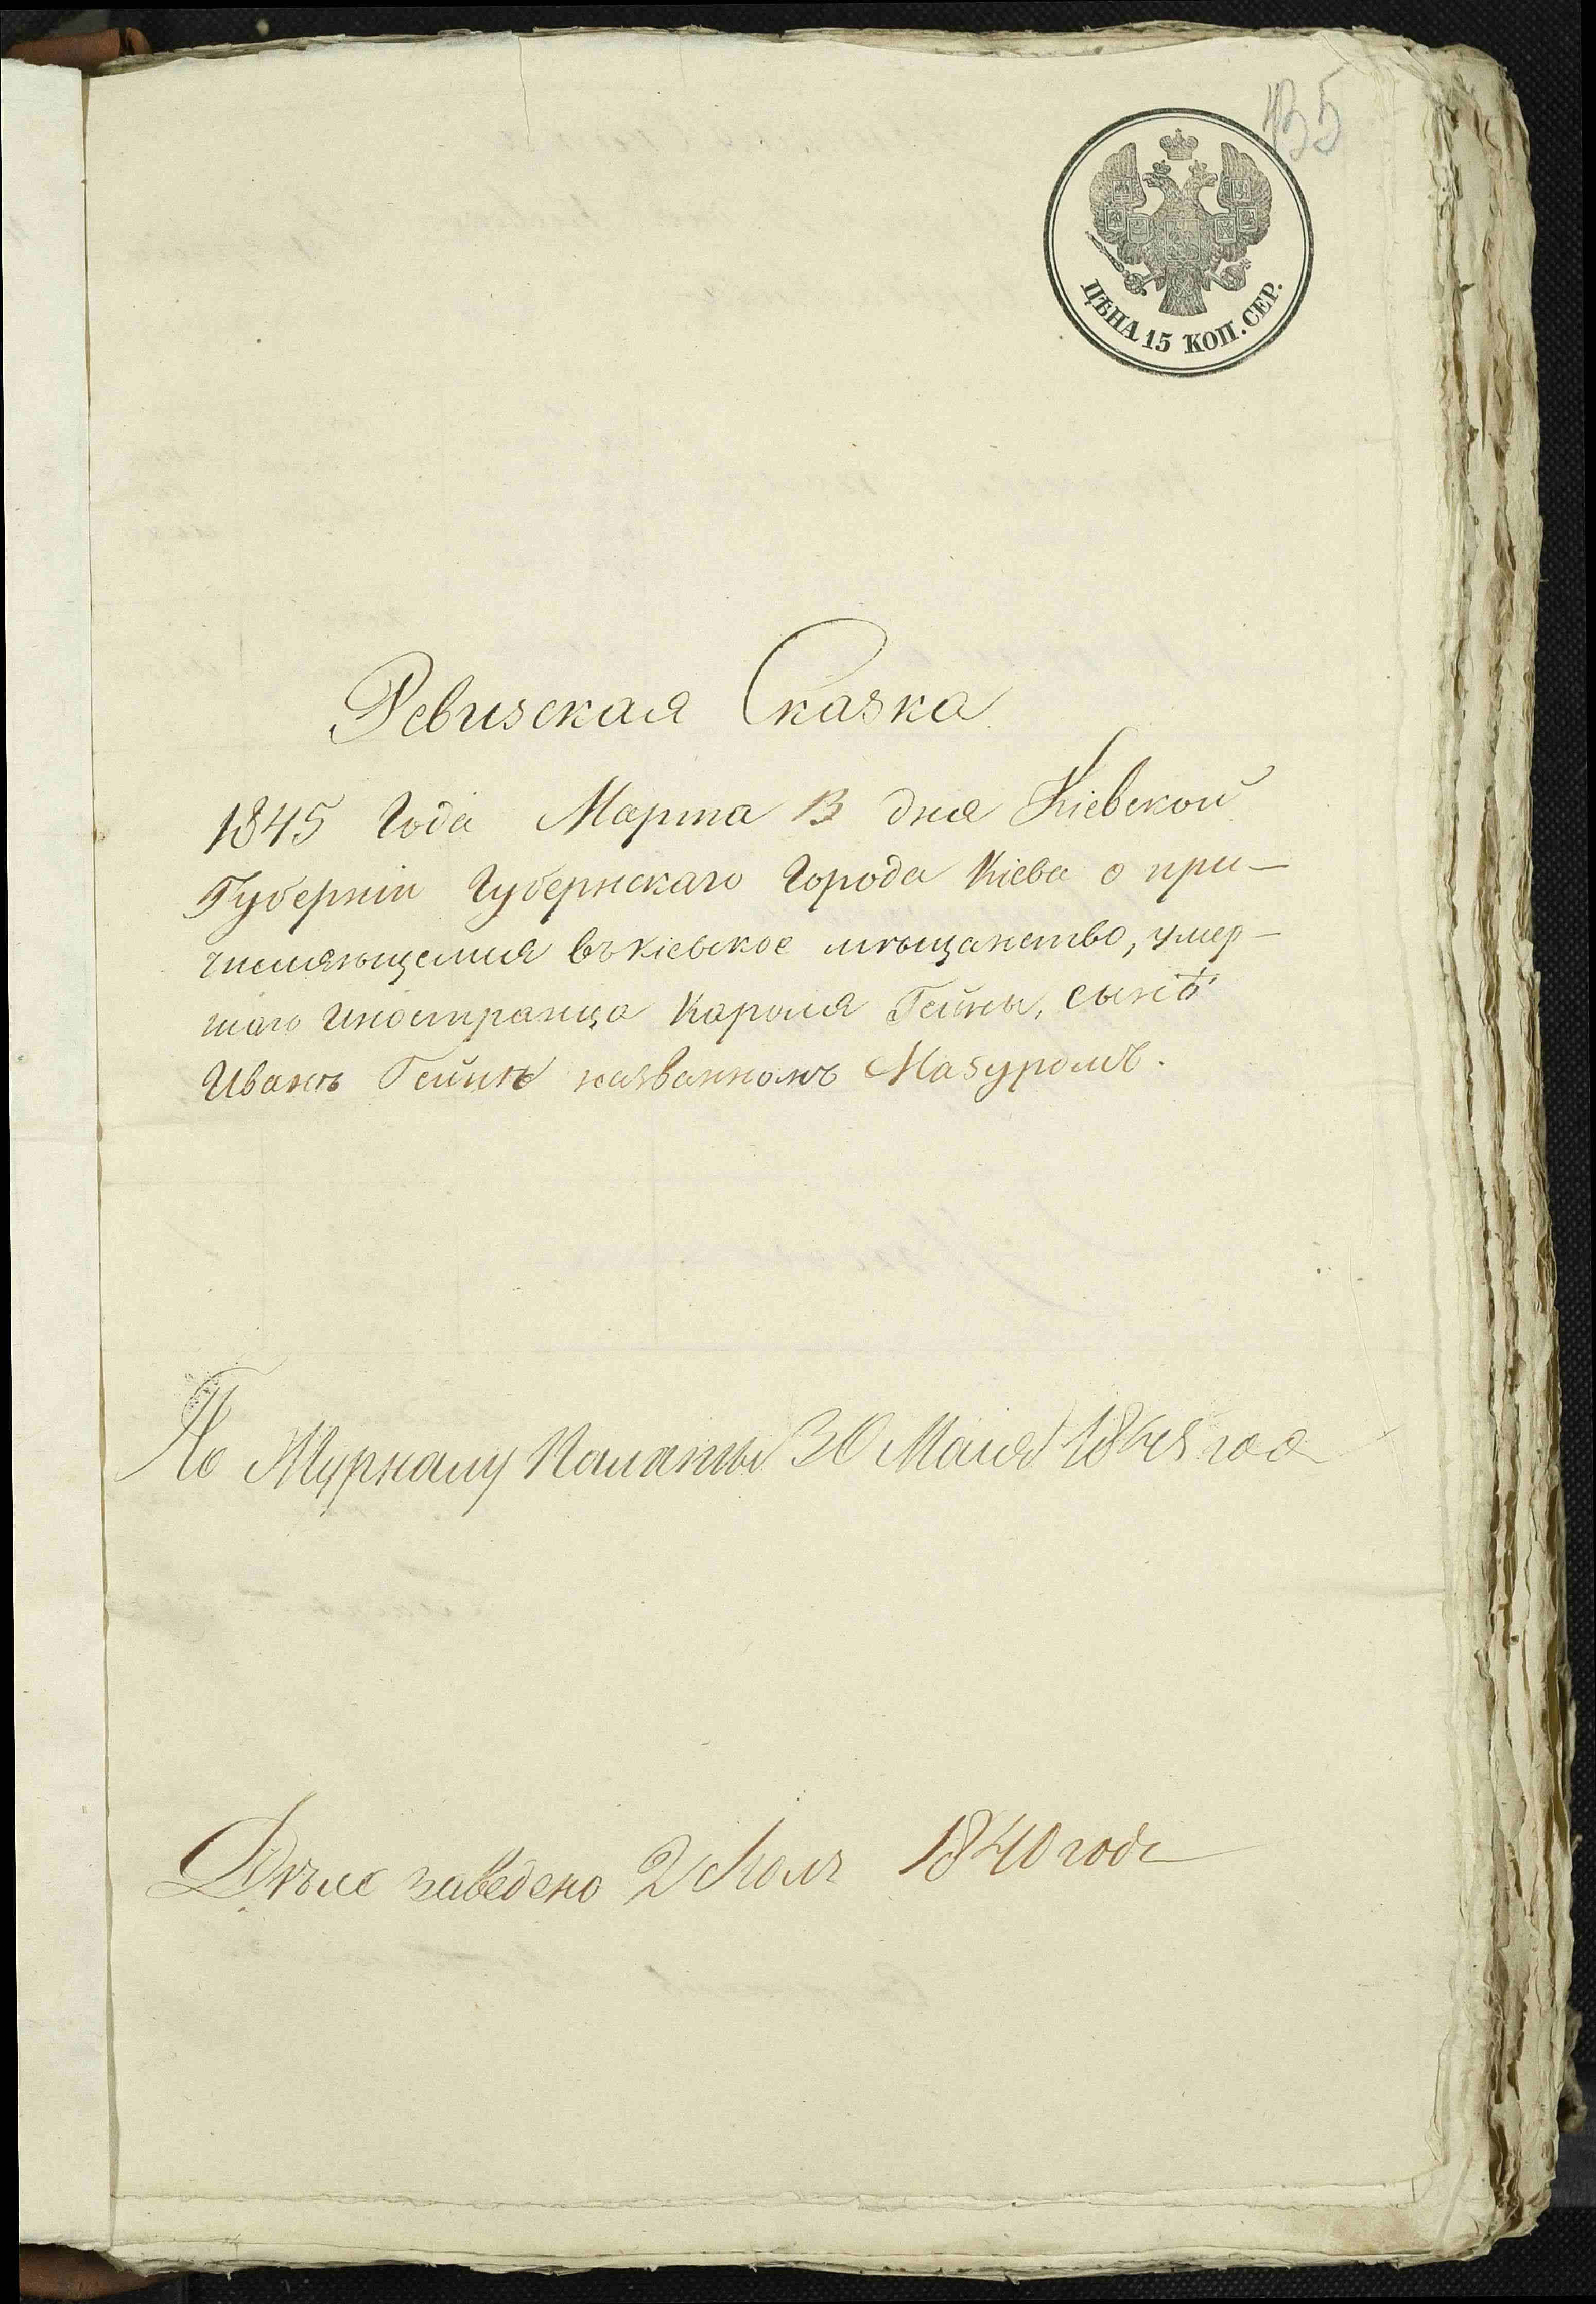 135
ЦѢНА 15 КОП. СЕР.
Ревизская Сказка
1845 Года Марта 13 дня Кіевской
Губерніи Губернскаго Города Кіева о при-
числяющемся въ кіевское мѣщанство, умер-
шаго Иностранца Кароля Гейны, сынѣ
Иванѣ Гейнѣ названномъ Мазуромъ.
По Журналу Палаты 30 Маія 1845 года
Дѣло заведено 2 1840 года